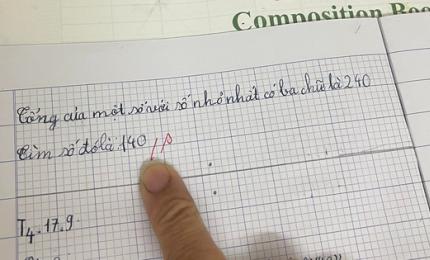 Composition Boo
Tổng của một số với số nhỏ nhất có ba chữ là 240
Tìm số đó là 140
T4.17.9